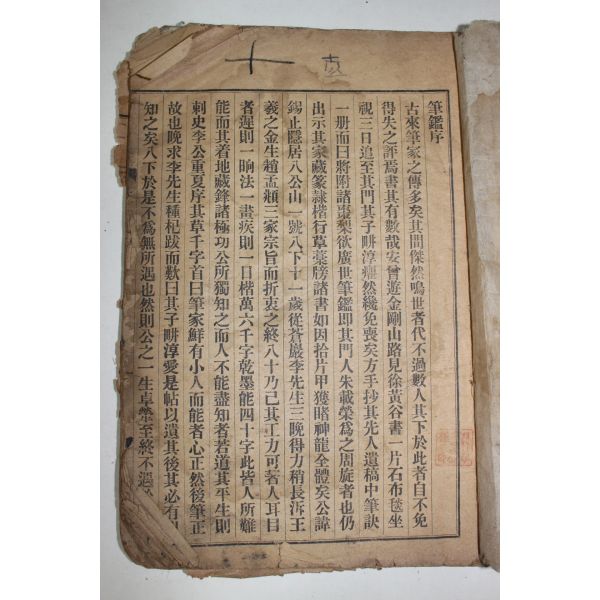 十
筆鑑序
古來筆家之傳多矣其間傑然鳴世者代不過數人其下於此者自不免
得失之評焉書其有數哉安曾遊金剛山路見徐黃谷書一片石布毯坐
視三日追至其門其子畊淳癯然纔免喪矣方手抄其先人遺稿中筆訣
一册而曰將附諸棗梨欲廣世筆鑑即其門人朱載榮爲之周旋者也仍
出示其家藏篆隷楷行草藁牓諸書如因拾片甲獲睹神龍全體矣公諱
錫止隱居八公山一號八下十一歲從蒼巖李先生三晩得力稍長泝王
羲之金生趙孟頫三家宗旨而折衷之終八十乃已其工力可著人耳目
者遲則一晌法一畫疾則一日楷萬六千字乾墨能四十字此皆人所難
能而其着地藏鋒諸極功公所獨知之而人不能盡知者若道其平生則
刺史李公重夏序其草千字首曰筆家鮮有小人而能者心正然後筆正
故也晩求李先生種杞跋而歎曰其子畊淳愛是帖以遺其後其必有
知之矣八下於是不爲無所遇也然則公之一生卓犖至終不遇